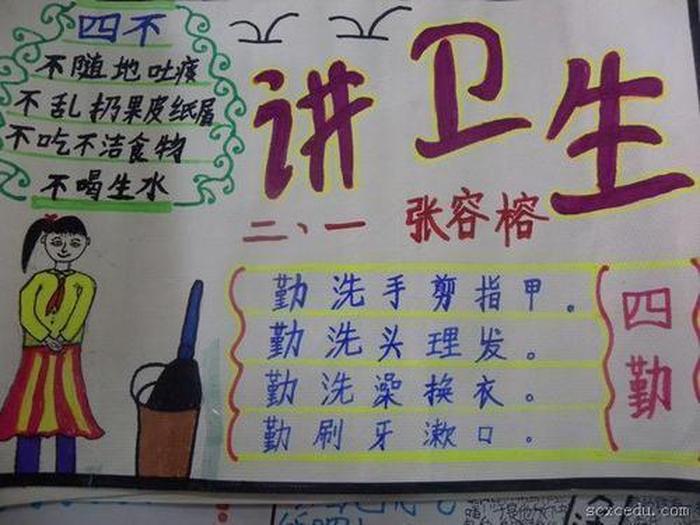 四不
不随地吐痰
不乱扔果皮纸屑
不吃不洁食物
不喝生水
讲卫生
二、一 张容榕
勤洗手剪指甲。
勤洗头理发。
勤洗澡换衣。
勤刷牙漱口。
四勤
scxcedu.com